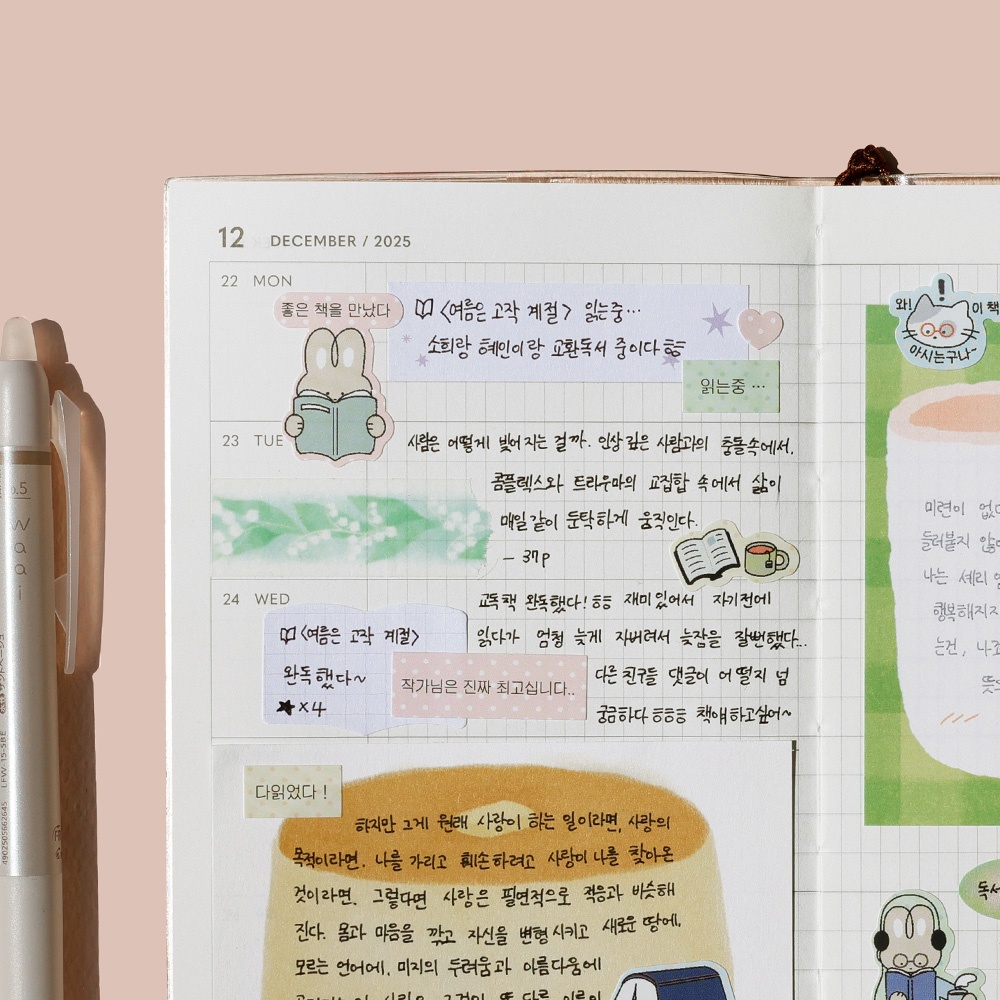 12 DECEMBER / 2025
22 MON
좋은 책을 만났다
〈여름은 고작 계절〉 읽는중…
소희랑 혜인이랑 교환독서 중이다 ㅎㅎ
읽는중 …
23 TUE
사람은 어떻게 빚어지는 걸까. 인상 깊은 사람과의 충돌 속에서,
콤플렉스와 트라우마의 교집합 속에서 삶이
매일같이 둔탁하게 움직인다.
– 37p
24 WED
〈여름은 고작 계절〉
완독했다~
★×4
작가님은 진짜 최고십니다..
교독책 완독했다! ㅎㅎ 재미있어서 자기전에
읽다가 엄청 늦게 자버려서 늦잠을 잘뻔했다..
다른 친구들 댓글이 어떨지 넘
궁금하다 ㅎㅎㅎ 책얘하고싶어~
다읽었다 !
하지만 그게 원래 사랑이 하는 일이라면, 사랑의
목적이라면, 나를 가리고 훼손하려고 사랑이 나를 찾아온
것이라면. 그렇다면 사랑은 필연적으로 적응과 비슷해
진다. 몸과 마음을 깎고 자신을 변형시키고 새로운 땅에,
모르는 언어에, 미지의 두려움과 아름다움에
와! 이 책
아시는구나~
미련이
들러붙지
나는 셰리
행복해지
는건, 나
독서
0.5
waai
LFW-15-SBE
4902505662645